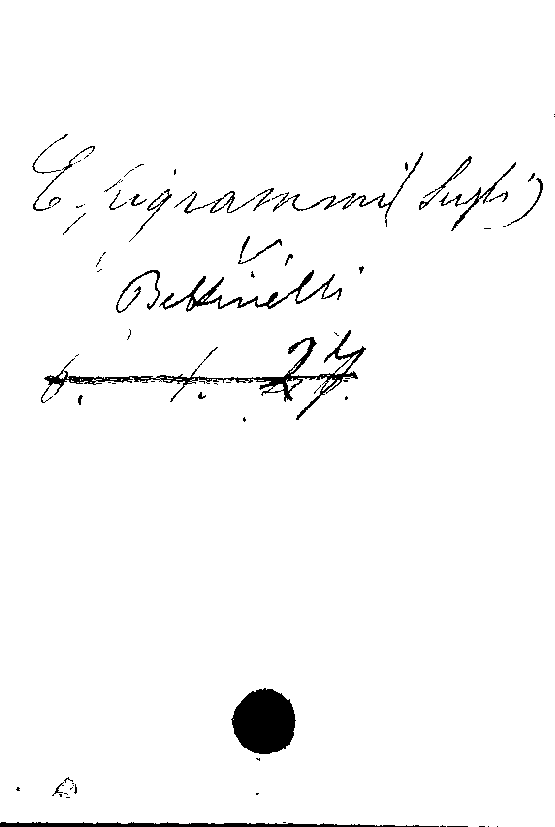 Epigrammi (Sugli)
V.
Bettinelli
6. 1. 27.